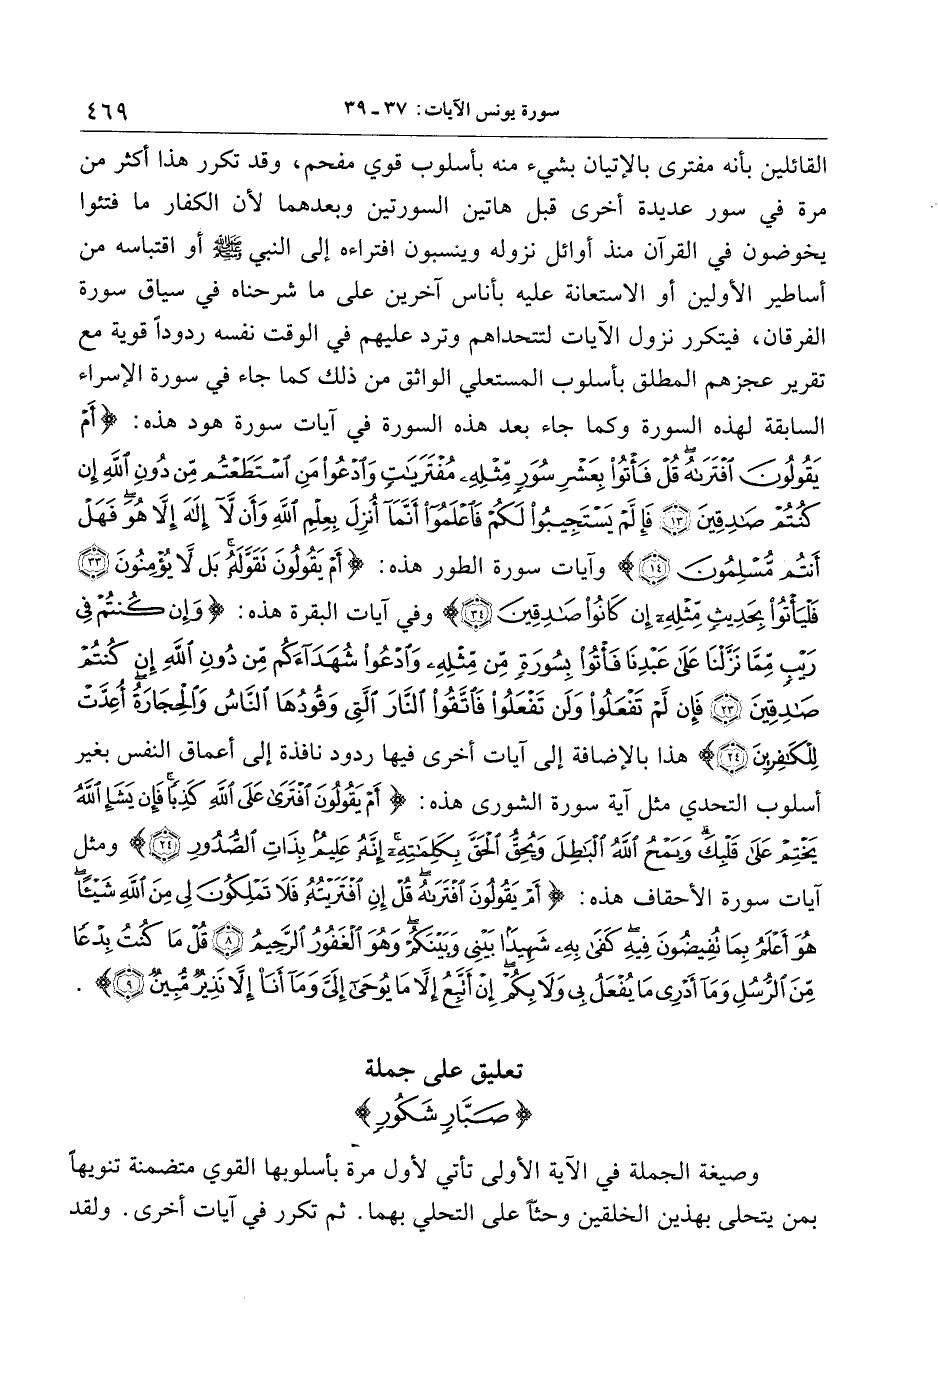 سورة يونس الآيات: ٣٧ - ٣٩ ٤٦٩
القائلين بأنه مفترى بالإتيان بشيء منه بأسلوب قوي مفحم، وقد تكرر هذا أكثر من
مرة في سور عديدة أخرى قبل هاتين السورتين وبعدهما لأن الكفار ما فتئوا
يخوضون في القرآن منذ أوائل نزوله وينسبون افتراءه إلى النبي ﷺ أو اقتباسه من
أساطير الأولين أو الاستعانة عليه بأناس آخرين على ما شرحناه في سياق سورة
الفرقان، فيتكرر نزول الآيات لتتحداهم وترد عليهم في الوقت نفسه ردوداً قوية مع
تقرير عجزهم المطلق بأسلوب المستعلي الواثق من ذلك كما جاء في سورة الإسراء
السابقة لهذه السورة وكما جاء بعد هذه السورة في آيات سورة هود هذه: ﴿أَمْ
يَقُولُونَ ٱفْتَرَىٰهُ ۖ قُلْ فَأْتُوا۟ بِعَشْرِ سُوَرٍ مِّثْلِهِۦ مُفْتَرَيَٰتٍ وَٱدْعُوا۟ مَنِ ٱسْتَطَعْتُم مِّن دُونِ ٱللَّهِ إِن
كُنتُمْ صَٰدِقِينَ ١٣ فَإِلَّمْ يَسْتَجِيبُوا۟ لَكُمْ فَٱعْلَمُوٓا۟ أَنَّمَآ أُنزِلَ بِعِلْمِ ٱللَّهِ وَأَن لَّآ إِلَٰهَ إِلَّا هُوَ ۖ فَهَلْ
أَنتُم مُّسْلِمُونَ ١٤﴾ وآيات سورة الطور هذه: ﴿أَمْ يَقُولُونَ تَقَوَّلَهُۥ ۚ بَل لَّا يُؤْمِنُونَ ٣٣
فَلْيَأْتُوا۟ بِحَدِيثٍ مِّثْلِهِۦٓ إِن كَانُوا۟ صَٰدِقِينَ ٣٤﴾ وفي آيات البقرة هذه: ﴿وَإِن كُنتُمْ فِى
رَيْبٍ مِّمَّا نَزَّلْنَا عَلَىٰ عَبْدِنَا فَأْتُوا۟ بِسُورَةٍ مِّن مِّثْلِهِۦ وَٱدْعُوا۟ شُهَدَآءَكُم مِّن دُونِ ٱللَّهِ إِن كُنتُمْ
صَٰدِقِينَ ٢٣ فَإِن لَّمْ تَفْعَلُوا۟ وَلَن تَفْعَلُوا۟ فَٱتَّقُوا۟ ٱلنَّارَ ٱلَّتِى وَقُودُهَا ٱلنَّاسُ وَٱلْحِجَارَةُ ۖ أُعِدَّتْ
لِلْكَٰفِرِينَ ٢٤﴾ هذا بالإضافة إلى آيات أخرى فيها ردود نافذة إلى أعماق النفس بغير
أسلوب التحدي مثل آية سورة الشورى هذه: ﴿أَمْ يَقُولُونَ ٱفْتَرَىٰ عَلَى ٱللَّهِ كَذِبًا ۖ فَإِن يَشَإِ ٱللَّهُ
يَخْتِمْ عَلَىٰ قَلْبِكَ ۗ وَيَمْحُ ٱللَّهُ ٱلْبَٰطِلَ وَيُحِقُّ ٱلْحَقَّ بِكَلِمَٰتِهِۦٓ ۚ إِنَّهُۥ عَلِيمٌۢ بِذَاتِ ٱلصُّدُورِ ٢٤﴾ ومثل
آيات سورة الأحقاف هذه: ﴿أَمْ يَقُولُونَ ٱفْتَرَىٰهُ ۖ قُلْ إِنِ ٱفْتَرَيْتُهُۥ فَلَا تَمْلِكُونَ لِى مِنَ ٱللَّهِ شَيْـًٔا ۖ
هُوَ أَعْلَمُ بِمَا تُفِيضُونَ فِيهِ ۖ كَفَىٰ بِهِۦ شَهِيدًۢا بَيْنِى وَبَيْنَكُمْ ۖ وَهُوَ ٱلْغَفُورُ ٱلرَّحِيمُ ٨ قُلْ مَا كُنتُ بِدْعًا
مِّنَ ٱلرُّسُلِ وَمَآ أَدْرِى مَا يُفْعَلُ بِى وَلَا بِكُمْ ۖ إِنْ أَتَّبِعُ إِلَّا مَا يُوحَىٰٓ إِلَىَّ وَمَآ أَنَا۠ إِلَّا نَذِيرٌ مُّبِينٌ ٩﴾.
تعليق على جملة
﴿صَبَّارٍ شَكُورٍ﴾
وصيغة الجملة في الآية الأولى تأتي لأول مرة بأسلوبها القوي متضمنة تنويهاً
بمن يتحلى بهذين الخلقين وحثّاً على التحلي بهما. ثم تكرر في آيات أخرى. ولقد